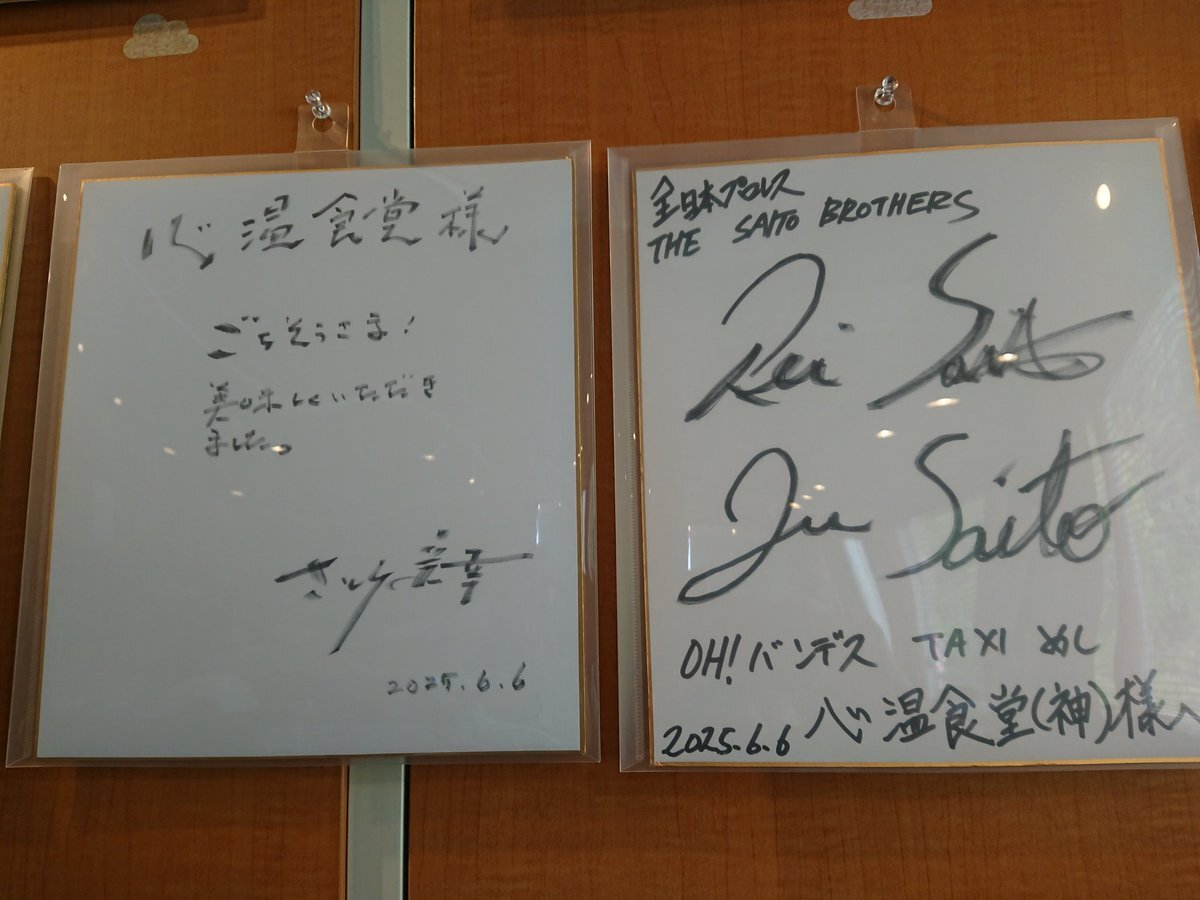 心温食堂様
ごちそうさま!
美味しくいただき
ました。
2025.6.6
全日本プロレス
THE SAITO BROTHERS
Rei Saito
Jun Saito
OH!バンデス TAXIめし
2025.6.6 心温食堂(神)様へ